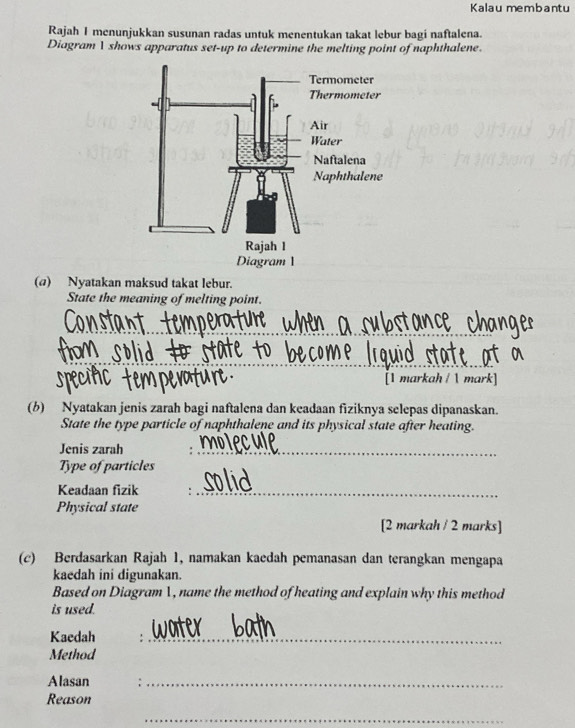 Kalau membantu
Rajah 1 menunjukkan susunan radas untuk menentukan takat lebur bagi naftalena.
Diagram 1 shows apparatus set-up to determine the melting point of naphthalene.
Termometer
Thermometer
Air
Water
Naftalena
Naphthalene
Rajah 1
Diagram 1
(a) Nyatakan maksud takat lebur.
State the meaning of melting point.
Constant temperature when a substance changes
from solid state to become liquid state at a
specific temperature.
[1 markah / 1 mark]
(b) Nyatakan jenis zarah bagi naftalena dan keadaan fiziknya selepas dipanaskan.
State the type particle of naphthalene and its physical state after heating.
Jenis zarah : molecule
Type of particles
Keadaan fizik : solid
Physical state
[2 markah / 2 marks]
(c) Berdasarkan Rajah 1, namakan kaedah pemanasan dan terangkan mengapa
kaedah ini digunakan.
Based on Diagram 1, name the method of heating and explain why this method
is used.
Kaedah : water bath
Method
Alasan :
Reason